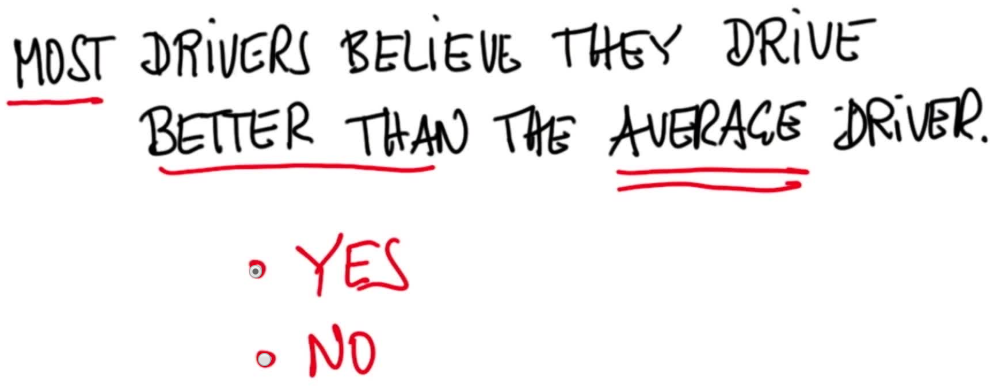 MOST DRIVERS BELIEVE THEY DRIVE
BETTER THAN THE AVERAGE DRIVER.
YES
NO